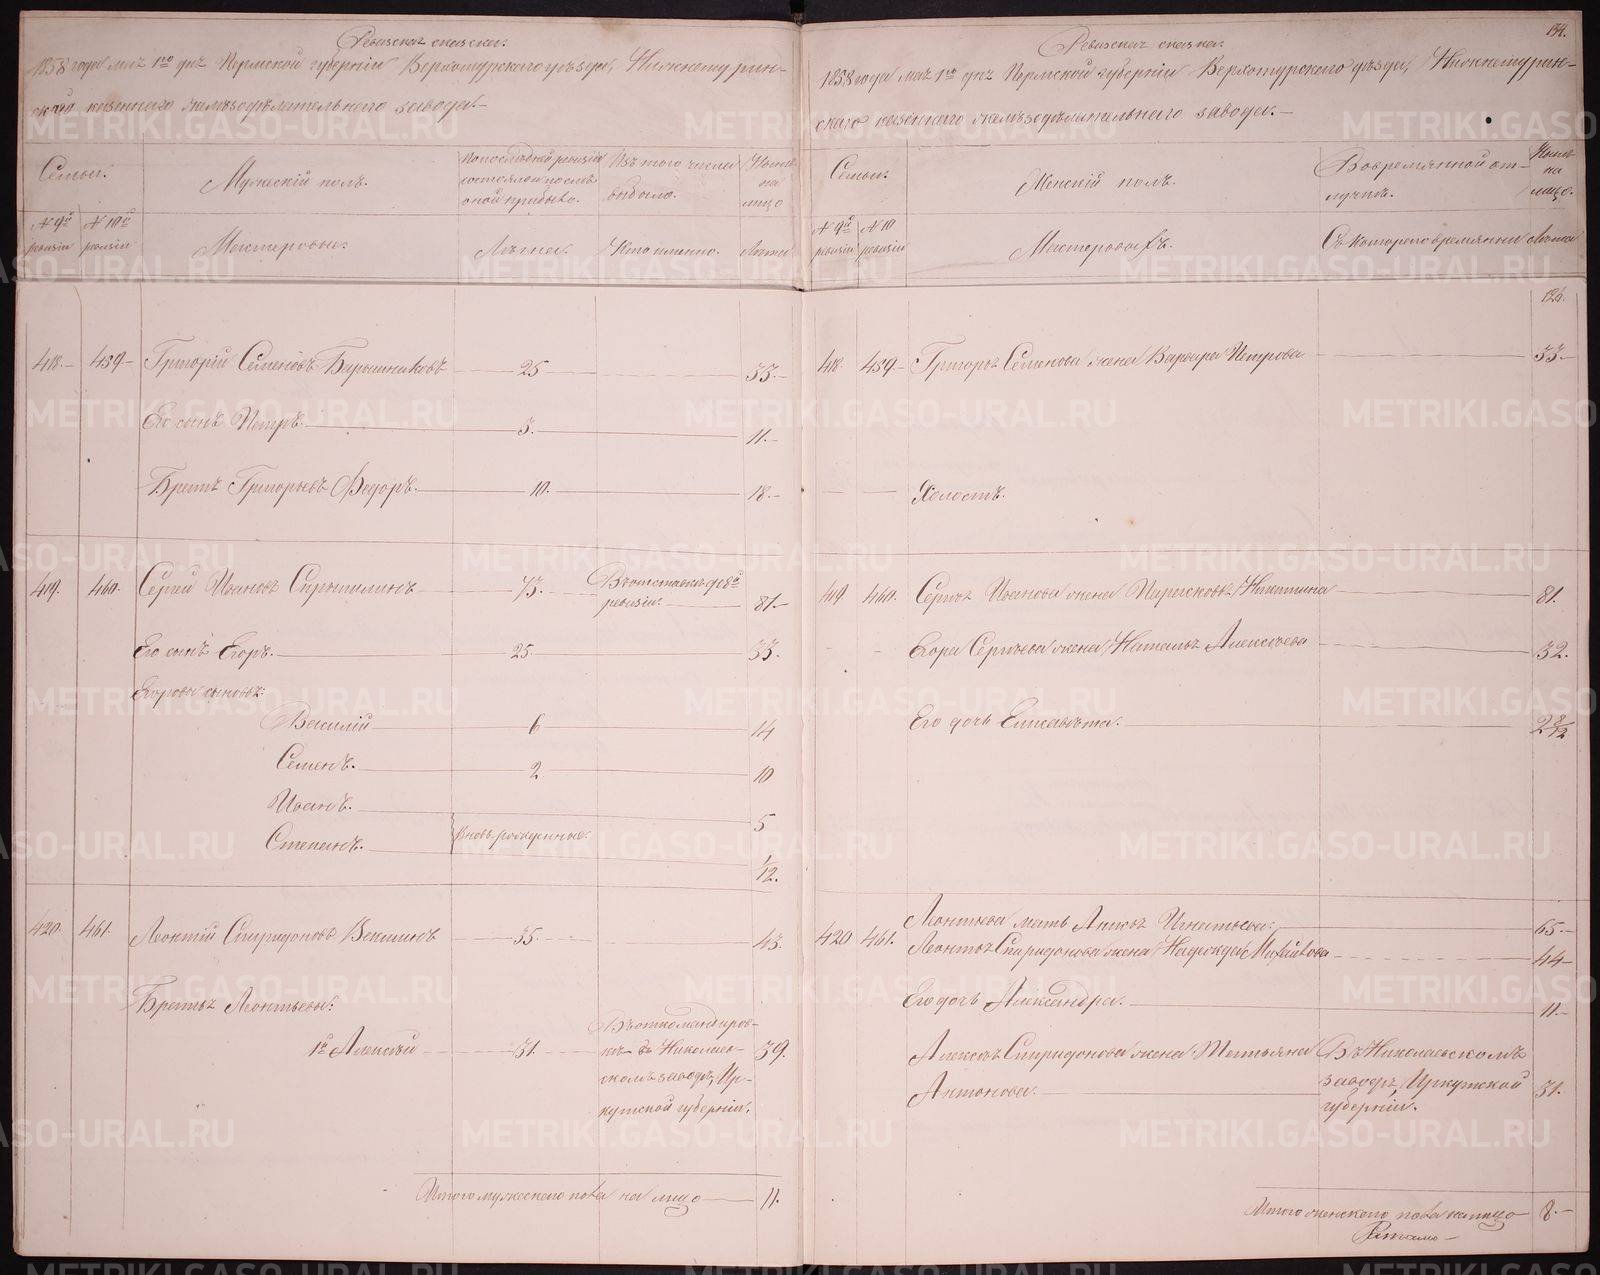 Ревизская сказка.
1858 года маія 1го дня Пермской губерніи Верхотурскаго уѣзда, Нижнетурин-
скаго казеннаго желѣзодѣлательнаго завода.
Семьи.
Мужескій полъ.
По послѣдней ревизіи состояло и послѣ оной прибыло.
Изъ того числа выбыло.
Нынѣ на лицо
№ 9й ревизіи
№ 10й ревизіи
Мастеровые.
Лѣта.
Кто именно.
Лѣта
418.
459
Григорій Семеновъ Барышниковъ
25
33.
Его сынъ Петръ.
3.
11.
Братъ Григорьевъ Федоръ.
10.
18.
419.
460.
Сергей Ивановъ Скрыпилинъ
73.
Въ отставке до 8й
ревизіи.
81
Его сынъ Егоръ.
25.
33.
Егоровы сыновья:
Василій
6
14
Семенъ.
2
10
Иванъ.
5
Степанъ.
Вновь рожденные.
1/12.
420.
461.
Леонтій Спиридоновъ Векшинъ
35
43.
Братья Леонтьевы:
1й Алексѣй
31.
Въ откомандиров-
кѣ въ Николаев-
скомъ заводѣ, Ир-
кутской губерніи.
39.
Итого мужескаго пола на лицо
11.
134.
Ревизская сказка.
1858 года маія 1го дня Пермской губерніи Верхотурскаго уѣзда, Нижнетурин-
скаго казеннаго желѣзодѣлательнаго завода.
Семьи.
Женскій полъ.
Во временной от-
лучкѣ.
Нынѣ на лицо.
№ 9й ревизіи
№ 10 ревизіи
Мастеровыхъ.
Съ котораго времяни
Лѣта
126.
418.
459
Григорья Семенова жена Варвара Петрова
33.
Холостъ.
419.
460.
Сергья Иванова жена Парасковья Никитина
81.
Егора Сергѣева жена Наталья Алексѣева
32.
Его дочь Елисавѣта.
2 8/12
Леонтьева мать Анна Игнатьева.
65
420
461.
Леонтья Спиридонова жена Надежда Михайлова
44
Его дочь Александра.
11
Алексѣя Спиридонова жена Татьяна
Антонова.
Въ Николаевскомъ
заводѣ, Иркутской
губерніи.
31.
Итого женскаго пола на лицо
8.
METRIKI.GASO-URAL.RU